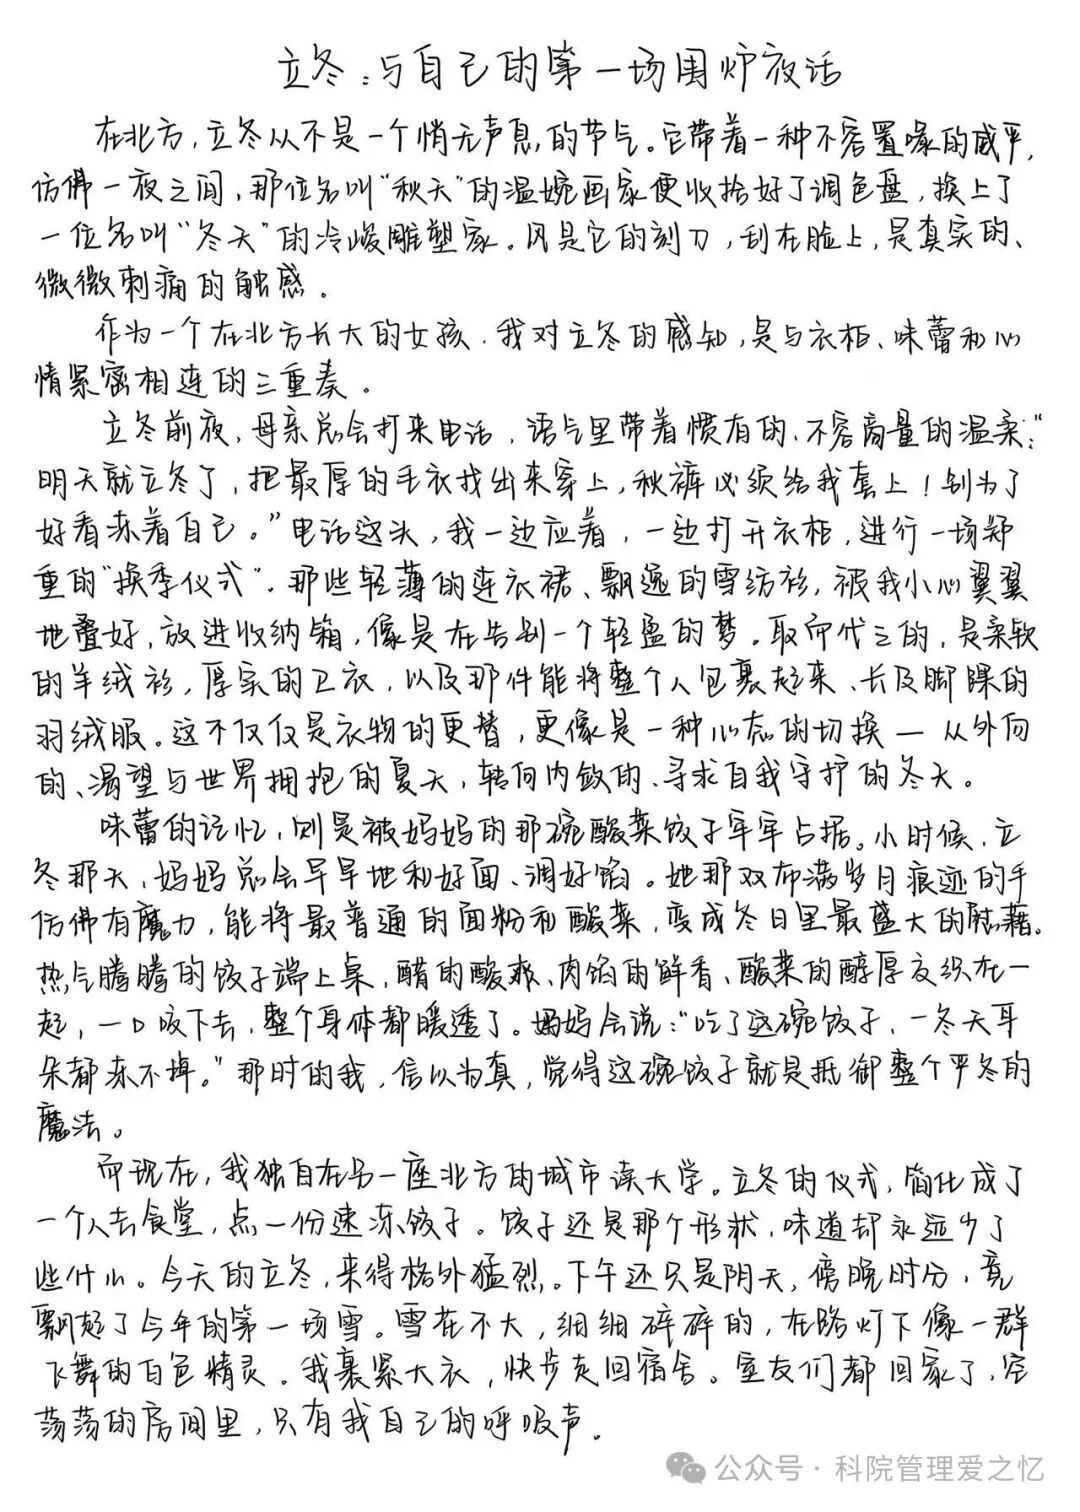 立冬：与自己的第一场围炉夜话
在北方，立冬从不是一个悄无声息的节气。它带着一种不容置喙的威严，
仿佛一夜之间，那位名叫“秋天”的温婉画家便收拾好了调色盘，换上了
一位名叫“冬天”的冷峻雕塑家。风是它的刻刀，刮在脸上，是真实的、
微微刺痛的触感。
作为一个在北方长大的女孩，我对立冬的感知，是与衣柜、味蕾和心
情紧密相连的三重奏。
立冬前夜，母亲总会打来电话，语气里带着惯有的、不容商量的温柔：“
明天就立冬了，把最厚的毛衣找出来穿上，秋裤必须给我套上！别为了
好看冻着自己。”电话这头，我一边应着，一边打开衣柜，进行一场郑
重的“换季仪式”。那些轻薄的连衣裙、飘逸的雪纺衫，被我小心翼翼
地叠好，放进收纳箱，像是在告别一个轻盈的梦。取而代之的，是柔软
的羊绒衫，厚实的卫衣，以及那件能将整个人包裹起来、长及脚踝的
羽绒服。这不仅仅是衣物的更替，更像是一种心态的切换—从外向
的、渴望与世界拥抱的夏天，转向内敛的、寻求自我守护的冬天。
味蕾的记忆，则是被妈妈的那碗酸菜饺子牢牢占据。小时候，立
冬那天，妈妈总会早早地和好面、调好馅。她那双布满岁月痕迹的手
仿佛有魔力，能将最普通的面粉和酸菜，变成冬日里最盛大的慰藉。
热气腾腾的饺子端上桌，醋的酸爽、肉馅的鲜香、酸菜的醇厚交织在一
起，一口咬下去，整个身体都暖透了。妈妈会说：“吃了这碗饺子，一冬天耳
朵都冻不掉。”那时的我，信以为真，觉得这碗饺子就是抵御整个严冬的
魔法。
而现在，我独自在另一座北方的城市读大学。立冬的仪式，简化成了
一个人去食堂，点一份速冻饺子。饺子还是那个形状，味道却永远少了
些什么。今天的立冬，来得格外猛烈。下午还只是阴天，傍晚时分，竟
飘起了今年的第一场雪。雪花不大，细细碎碎的，在路灯下像一群
飞舞的白色精灵。我裹紧大衣，快步走回宿舍。室友们都回家了，空
荡荡的房间里，只有我自己的呼吸声。
公众号·科院管理爱之忆